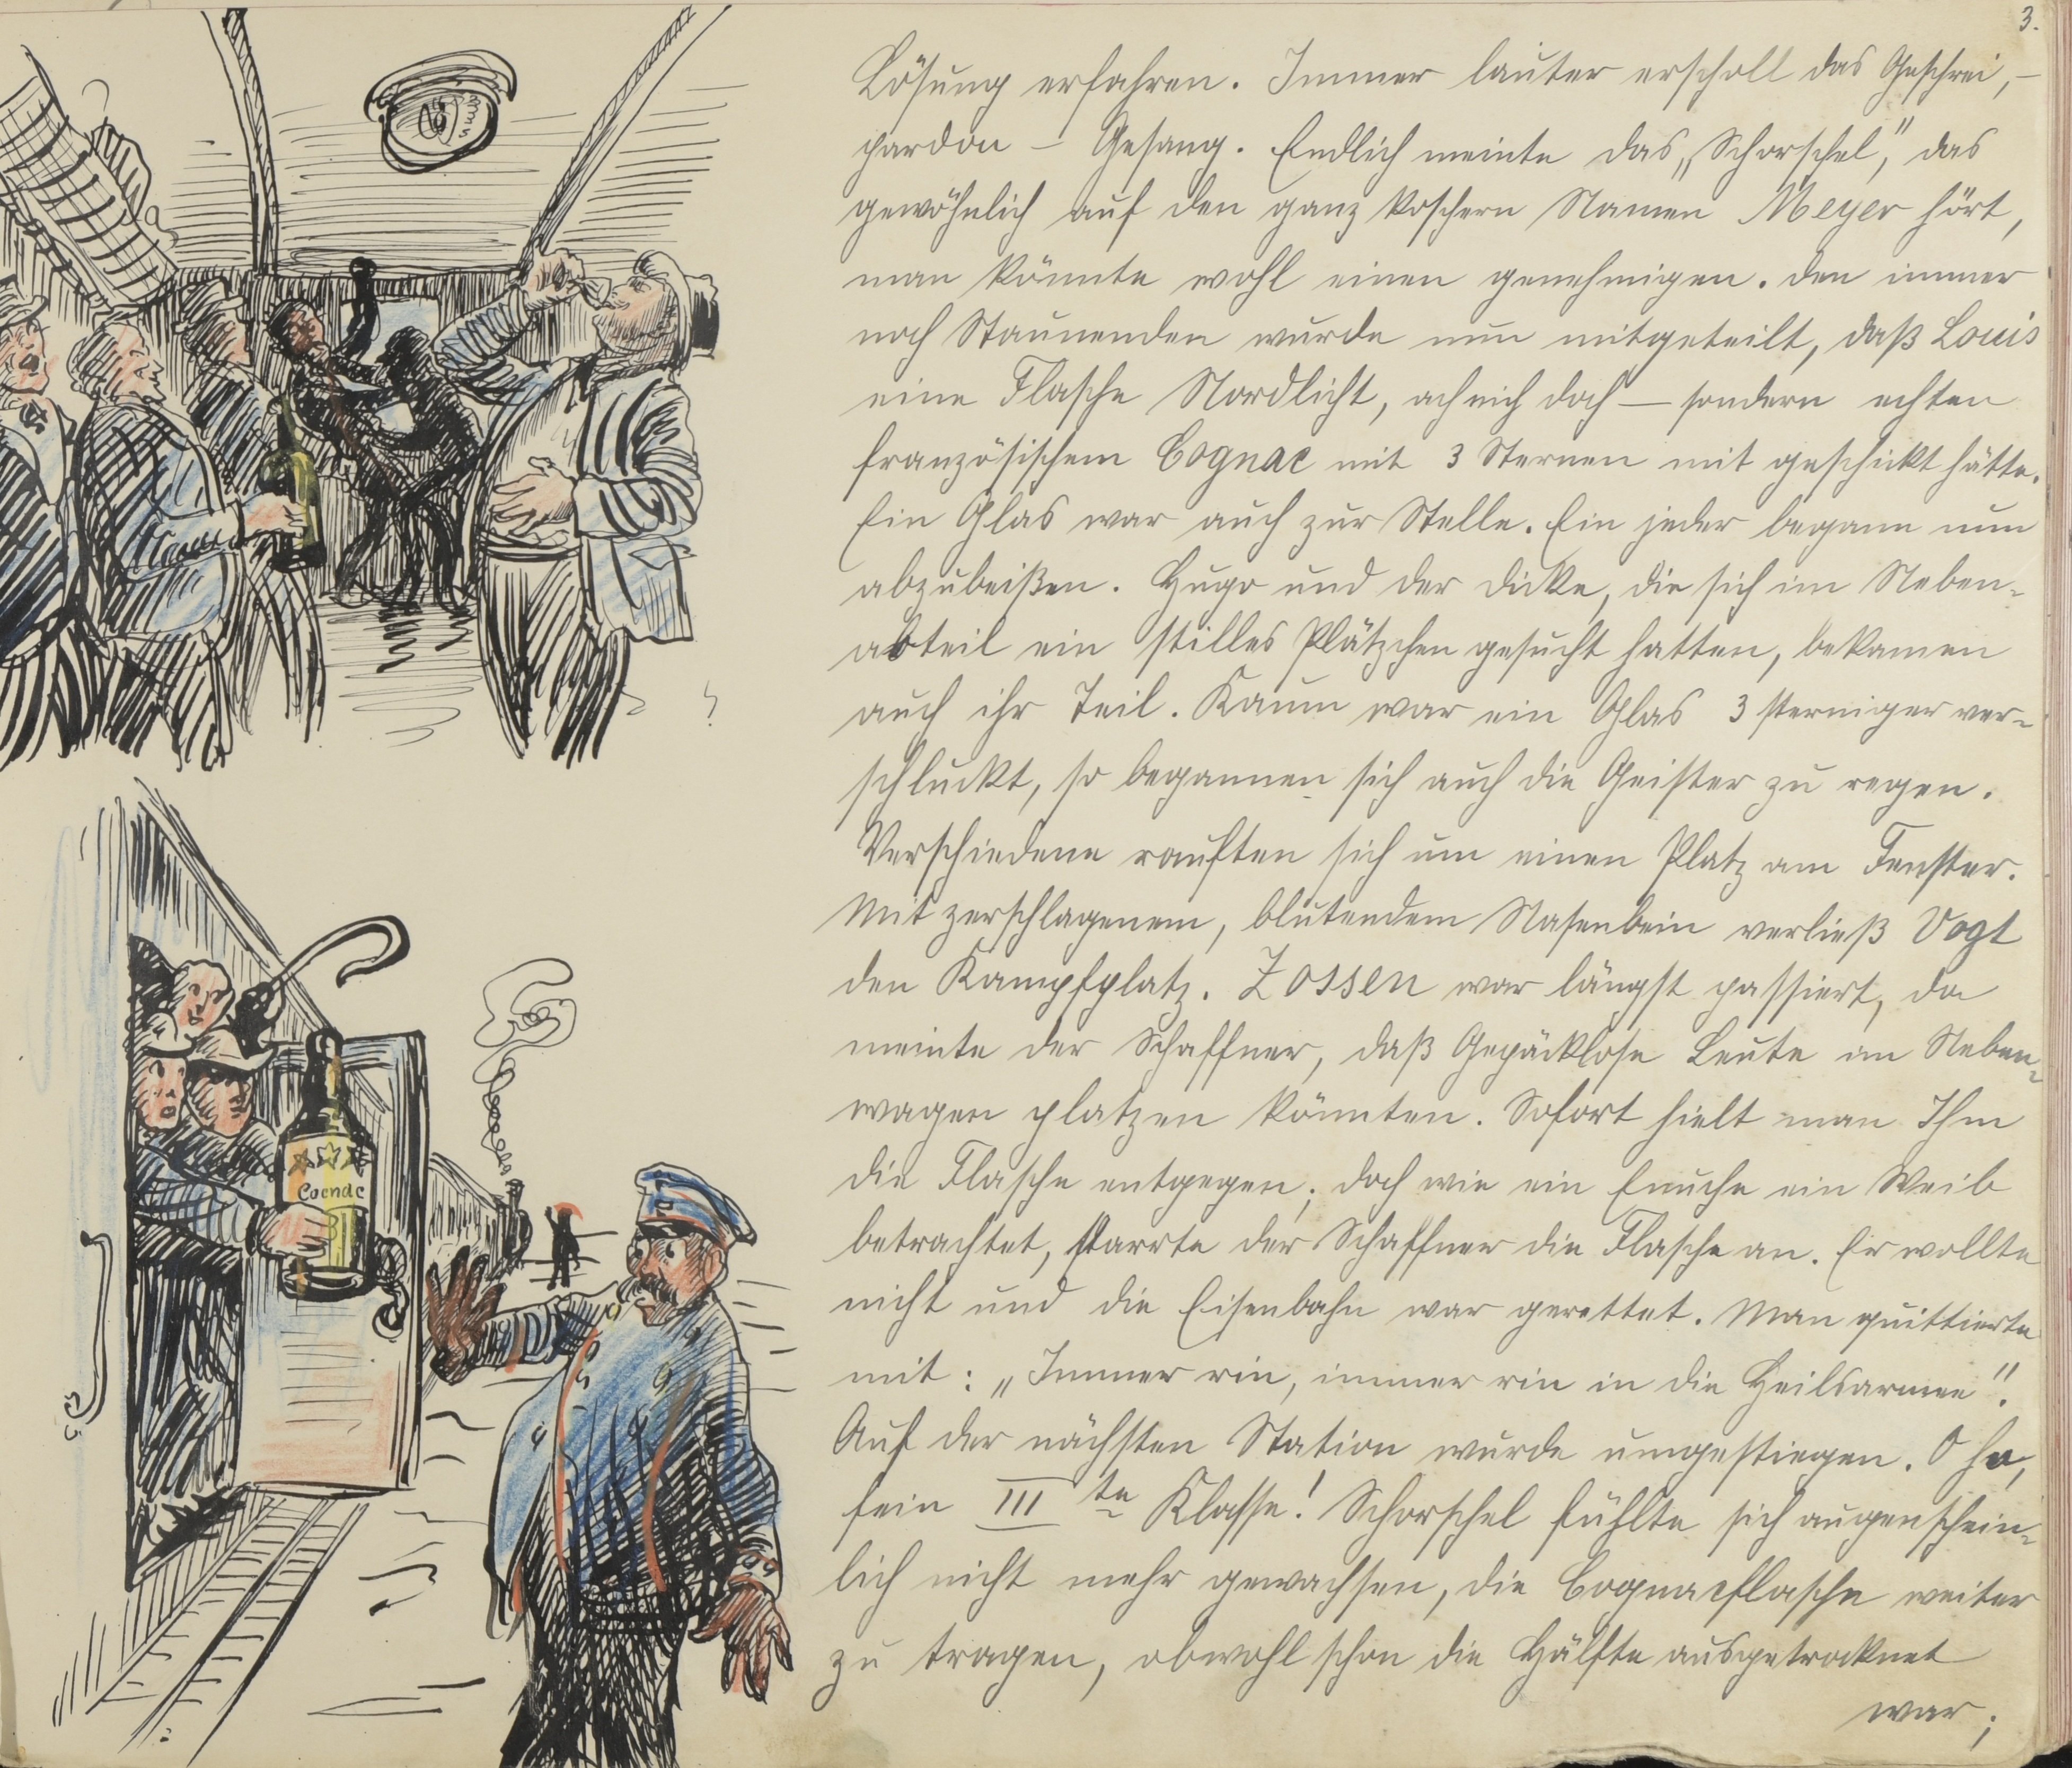 3.
Lösung erfahren. Immer lauter erscholl das Geschrei, –
pardon – Gesang. Endlich meinte das „Schorschel", das
gewöhnlich auf den ganz koschern Namen Meyer hört,
man könnte wohl einen genehmigen. Den immer
noch Staunenden wurde nun mitgeteilt, daß Louis
eine Flasche Nordlicht, ach nich doch – sondern echten
französischem Cognac mit 3 Sternen mit geschickt hätte.
Ein Glas war auch zur Stelle. Ein jeder begann nun
abzubeißen. Hugo und der Dicke, die sich im Neben-
abteil ein stilles Plätzchen gesucht hatten, bekamen
auch ihr Teil. Kaum war ein Glas 3 sterniger ver-
schluckt, so begannen sich auch die Geister zu regen.
Verschiedene rauften sich um einen Platz am Fenster.
Mit zerschlagenem, blutendem Nasenbein verließ Vogt
den Kampfplatz. Zossen war längst passiert, da
meinte der Schaffner, daß Gepäcklose Leute im Neben-
wagen platzen könnten. Sofort hielt man Ihm
die Flasche entgegen; doch wie ein Enuche ein Weib
betrachtet, starrte der Schaffner die Flasche an. Er wollte
nicht und die Eisenbahn war gerettet. Man quittierte
mit: „Immer rin, immer rin in die Heilsarmee".
Auf der nächsten Station wurde umgestiegen. O ha,
fein III te Klasse! Schorschel fühlte sich augenschein-
lich nicht mehr gewachsen, die Cognacflasche weiter
zu tragen, obwohl schon die Hälfte ausgetrocknet
war;
Cocnac